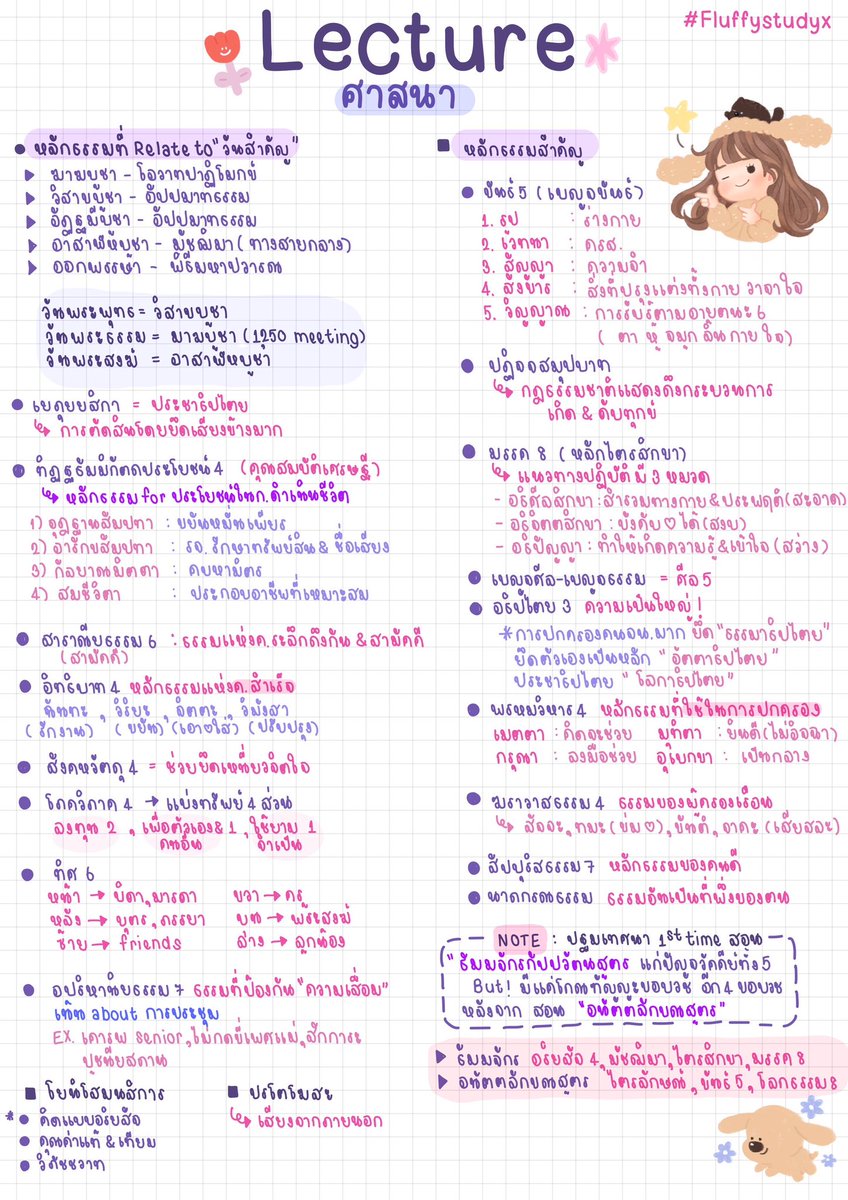 #Fluffystudyx
Lecture
ศาสนา
หลักธรรมที่ Relate to "วันสำคัญ"
มาฆบูชา - โอวาทปาฏิโมกข์
วิสาขบูชา - อัปปมาทธรรม
อัฏฐมีบูชา - อัปปมาทธรรม
อาสาฬหบูชา - มัชฌิมา (ทางสายกลาง)
ออกพรรษา - พิธีมหาปวารณา
วันพระพุทธ = วิสาขบูชา
วันพระธรรม = มาฆบูชา (1250 meeting)
วันพระสงฆ์ = อาสาฬหบูชา
เยภุยยสิกา = ประชาธิปไตย
↳ การตัดสินโดยยึดเสียงข้างมาก
ทิฏฐธัมมิกัตถประโยชน์ 4 (คุณสมบัติเศรษฐี)
↳ หลักธรรม for ประโยชน์ในก.ดำเนินชีวิต
1) อุฏฐานสัมปทา : ขยันหมั่นเพียร
2) อารักขสัมปทา : รจ. รักษาทรัพย์สิน & ชื่อเสียง
3) กัลยาณมิตตา : คบหามิตร
4) สมชีวิตา : ประกอบอาชีพที่เหมาะสม
สาราณียธรรม 6 : ธรรมแห่งค.ระลึกถึงกัน & สามัคคี
(สามัคคี)
อิทธิบาท 4 หลักธรรมแห่งค.สำเร็จ
ฉันทะ , วิริยะ , จิตตะ , วิมังสา
(รักงาน) (ขยัน) (เอาใจใส่) (ปรับปรุง)
สังคหวัตถุ 4 = ช่วยยึดเหนี่ยวจิตใจ
โภควิภาค 4 → แบ่งทรัพย์ 4 ส่วน
ลงทุน 2 , เพื่อตัวเอง & 1 , ใช้ยาม 1
คนอื่น จำเป็น
ทิศ 6
หน้า → บิดา, มารดา ขวา → ครู
หลัง → บุตร, ภรรยา บน → พระสงฆ์
ซ้าย → friends ล่าง → ลูกน้อง
อปริหานิยธรรม 7 ธรรมที่ป้องกัน "ความเสื่อม"
เน้น about การประชุม
EX. เคารพ senior, ไม่กดขี่เพศแม่, สักการะ
ปูชนียสถาน
โยนิโสมนสิการ
* คิดแบบอริยสัจ
คุณค่าแท้ & เทียม
วิภัชชวาท
ปรโตโฆสะ
↳ เสียงจากภายนอก
หลักธรรมสำคัญ
ขันธ์ 5 (เบญจขันธ์)
1. รูป : ร่างกาย
2. เวทนา : ครส.
3. สัญญา : ความจำ
4. สังขาร : สิ่งที่ปรุงแต่งทั้งกาย วาจาใจ
5. วิญญาณ : การรับรู้ตามอายตนะ 6
( ตา หู จมูก ลิ้น กาย ใจ )
ปฏิจจสมุปบาท
↳ กฎธรรมชาติแสดงถึงกระบวนการ
เกิด & ดับทุกข์
มรรค 8 (หลักไตรสิกขา)
↳ แนวทางปฏิบัติ มี 3 หมวด
- อธิศีลสิกขา : สำรวมทางกาย & ประพฤติ (สะอาด)
- อธิจิตตสิกขา : บังคับ ♡ ได้ (สงบ)
- อธิปัญญา : ทำให้เกิดความรู้ & เข้าใจ (สว่าง)
เบญจศีล-เบญจธรรม = ศีล 5
อธิปไตย 3 ความเป็นใหญ่ !
* การปกครองคนจน.มาก ยึด "ธรรมาธิปไตย"
ยึดตัวเองเป็นหลัก "อัตตาธิปไตย"
ประชาธิปไตย "โลกาธิปไตย"
พรหมวิหาร 4 หลักธรรมที่ใช้ในการปกครอง
เมตตา : คิดจะช่วย มุทิตา : ยินดี (ไม่อิจฉา)
กรุณา : ลงมือช่วย อุเบกขา : เป็นกลาง
ฆราวาสธรรม 4 ธรรมของผู้ครองเรือน
↳ สัจจะ, ทมะ (ข่ม ♡), ขันติ, จาคะ (เสียสละ)
สัปปุริสธรรม 7 หลักธรรมของคนดี
นาถกรณธรรม ธรรมอันเป็นที่พึ่งของตน
NOTE : ปฐมเทศนา 1st time สอน
"ธัมมจักรกัปปวัตนสูตร แก่ปัญจวัคคีย์ทั้ง 5
But! มีแค่โกณฑัญญะขอบวช อีก 4 ขอบวช
หลังจาก สอน "อนัตตลักขณสูตร"
ธัมมจักร อริยสัจ 4, มัชฌิมา, ไตรสิกขา, มรรค 8
อนัตตลักขณสูตร ไตรลักษณ์, ขันธ์ 5, โลกธรรม 8